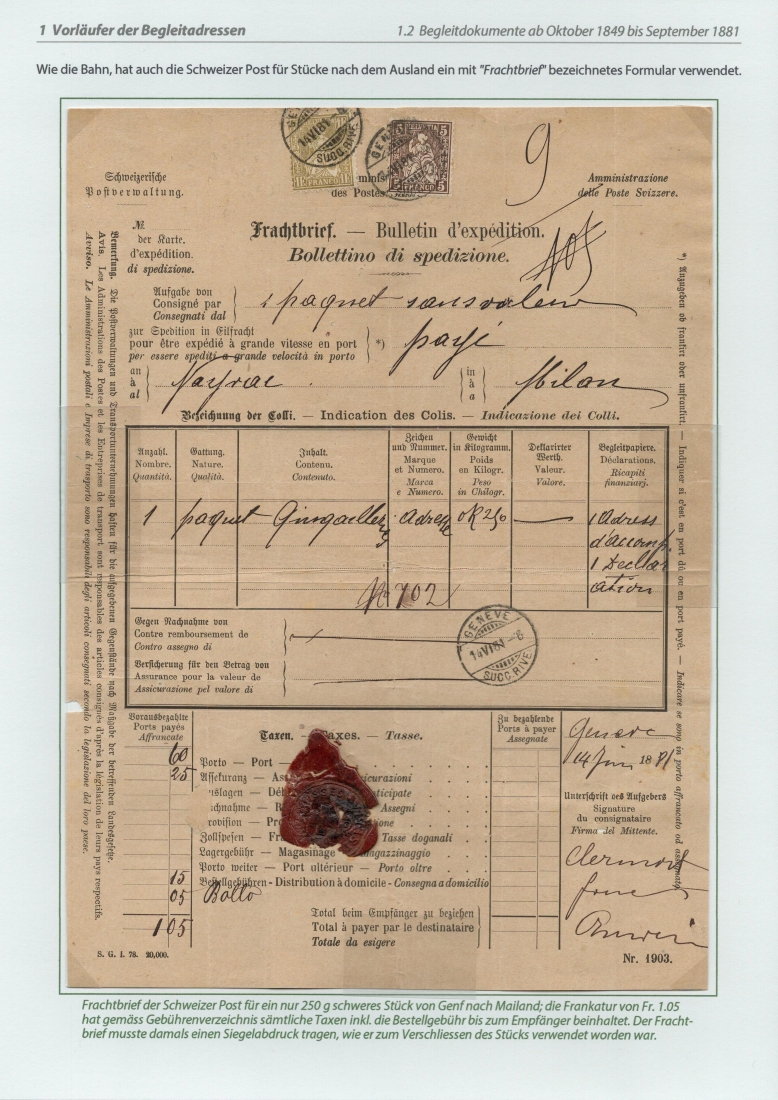 1 Vorläufer der Begleitadressen
1.2 Begleitdokumente ab Oktober 1849 bis September 1881
Wie die Bahn, hat auch die Schweizer Post für Stücke nach dem Ausland ein mit "Frachtbrief" bezeichnetes Formular verwendet.
14 VI 81
SUCC. RIVE
FRANCO
5
FRANCO
9
Schweizerische
Postverwaltung.
des Postes
Amministrazione
delle Poste Svizzere.
№
der Karte.
d'expédition.
di spedizione.
Frachtbrief. — Bulletin d'expédition.
Bollettino di spedizione.
105
Aufgabe von
Consigné par
Consegnati dal
1 paquet sans valeur
zur Spedition in Eilfracht
pour être expédié à grande vitesse en port
per essere spediti a grande velocità in porto
*)
payé
an
à
al
in
à
a
Milan
Bezeichnung der Colli. — Indication des Colis. — Indicazione dei Colli.
Anzahl.
Nombre.
Quantità.
Gattung.
Nature.
Qualità.
Inhalt.
Contenu.
Contenuto.
Zeichen
und Nummer.
Marque
et Numero.
Marca
e Numero.
Gewicht
in Kilogramm.
Poids
en Kilogr.
Peso
in Chilogr.
Deklarirter
Werth.
Valeur.
Valore.
Begleitpapiere.
Déclarations.
Ricapiti
finanziarj.
1 paquet Quincaillerie adresse 0K 250 —
1 Adress
d'accomp.
1 Declar
ation
N° 702
Gegen Nachnahme von
Contre remboursement de
Contro assegno di
Versicherung für den Betrag von
Assurance pour la valeur de
Assicurazione pel valore di
GENEVE
14 VI 81 – 8
SUCC. RIVE
Vorausbezahlte
Ports payés
Affrancate
60
25
15
05
1 05
Taxen. — Taxes. — Tasse.
Porto — Port
Assekuranz — icurazioni
uslagen — ticipate
chnahme — Assegni
rovision —
Zollspesen — Tasse doganali
Lagergebühr — Magasinage — agazzinaggio
Porto weiter — Port ultérieur — Porto oltre
Bestellgebühren - Distribution à domicile - Consegna a domicilio
Bollo
Total beim Empfänger zu beziehen
Total à payer par le destinataire
Totale da esigere
Zu bezahlende
Ports à payer
Assegnate
Genève
14 Juin 1881
Unterschrift des Aufgebers
Signature
du consignataire
Firma del Mittente.
Clermont
S. G. I. 78. 20,000.
Nr. 1903.
Bemerkung. Die Postverwaltungen und Transportunternehmungen haften für die aufgegebenen Gegenstände nach Maßgabe der betreffenden Landesgesetze.
Avis. Les Administrations des Postes et les Entreprises de transport sont responsables des articles consignés d'après la législation de leurs pays respectifs.
Avviso. Le Amministrazioni postali e Imprese di trasporto sono responsabili degli articoli consegnati secondo la legislazione del loro paese.
*) Anzugeben ob frankirt oder unfrankirt. — Indiquer si c'est en port dû ou en port payé. — Indicare se sono in porto affrancato od assegnato.
Frachtbrief der Schweizer Post für ein nur 250 g schweres Stück von Genf nach Mailand; die Frankatur von Fr. 1.05
hat gemäss Gebührenverzeichnis sämtliche Taxen inkl. die Bestellgebühr bis zum Empfänger beinhaltet. Der Fracht-
brief musste damals einen Siegelabdruck tragen, wie er zum Verschliessen des Stücks verwendet worden war.